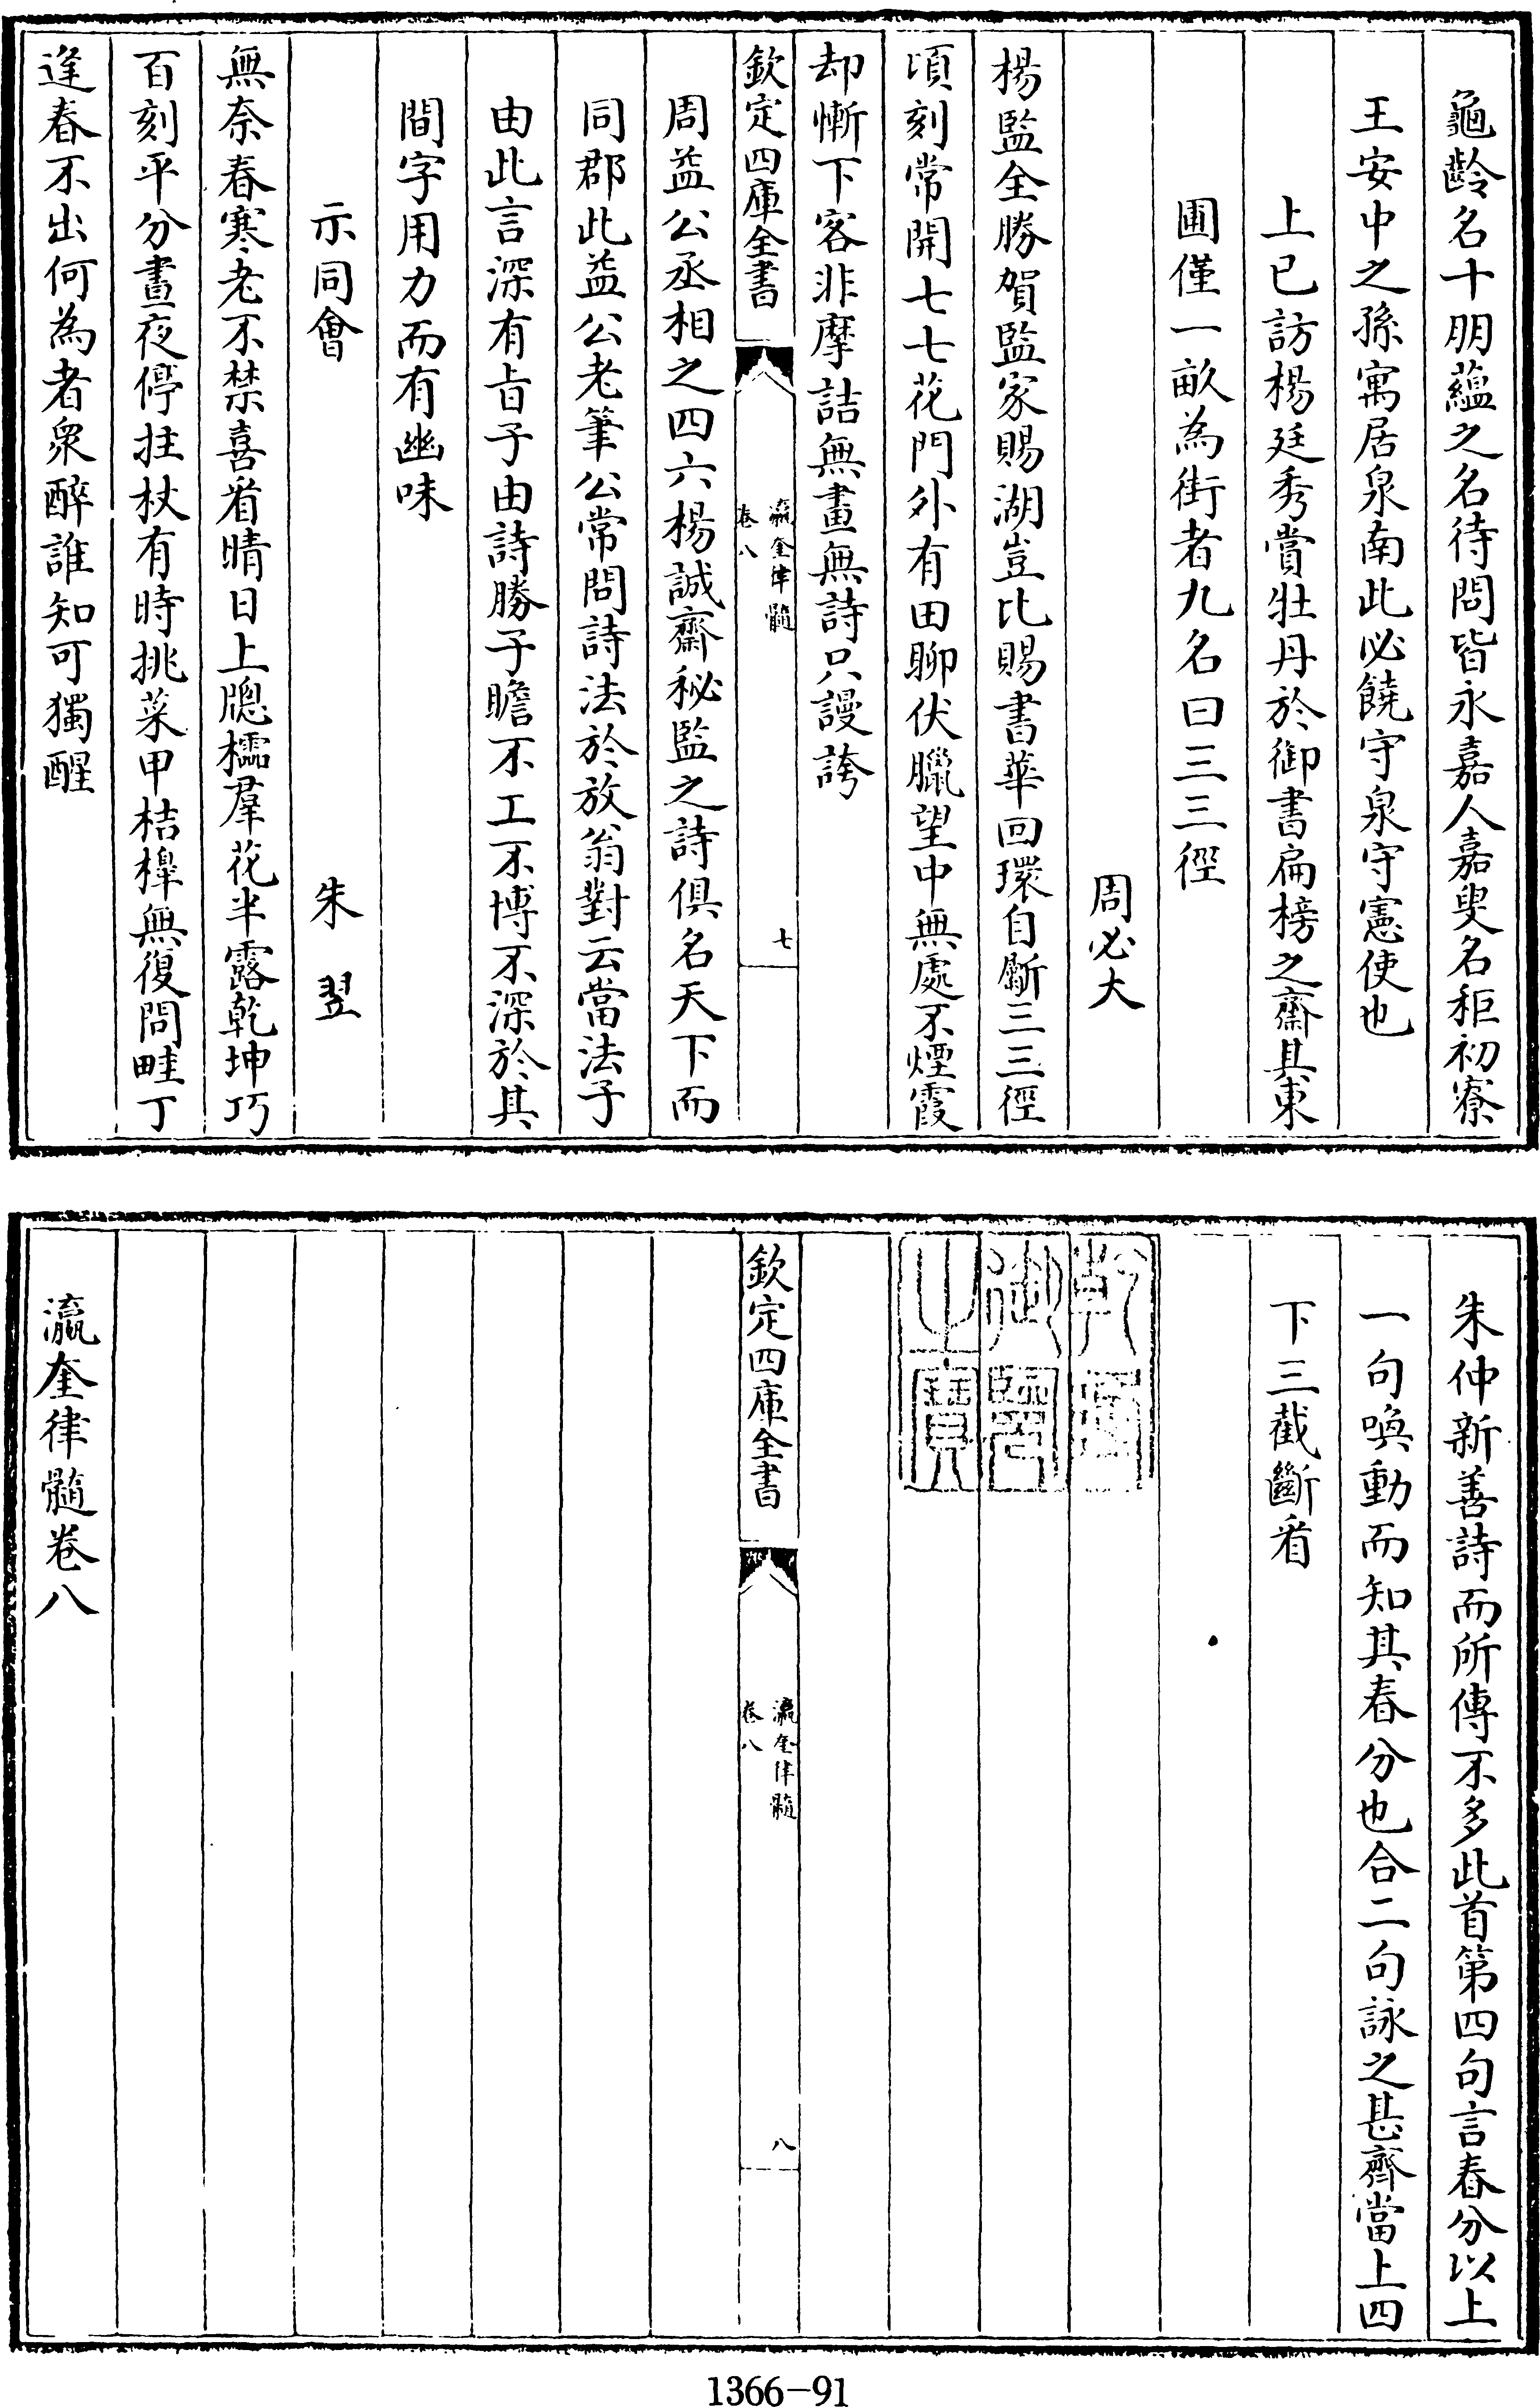 龜齡名十朋蘊之名待問皆永嘉人嘉叟名秬初寮
王安中之孫寓居泉南此必饒守泉守憲使也
上已訪楊廷秀賞牡丹於御書扁榜之齋其東
圃僅一畝為街者九名曰三三徑
周必大
楊監全勝賀監家賜湖豈比賜書華回環自斸三三徑
頃刻常開七七花門外有田聊伏臘望中無處不煙霞
却慚下客非摩詰無畫無詩只謾誇
欽定四庫全書
瀛奎律髓
卷八
七
周益公丞相之四六楊誠齋秘監之詩俱名天下而
同郡此益公老筆公常問詩法於放翁對云當法子
由此言深有旨子由詩勝子瞻不工不博不深於其
間字用力而有幽味
示同會
朱翌
無奈春寒老不禁喜看晴日上窗櫺羣花半露乾坤巧
百刻平分晝夜停拄杖有時挑菜甲桔槹無復問畦丁
逢春不出何為者衆醉誰知可獨醒
朱仲新善詩而所傳不多此首第四句言春分以上
一句喚動而知其春分也合二句詠之甚齊當上四
下三截斷看
乾隆
御覽
之寶
欽定四庫全書
瀛奎律髓
卷八
八
瀛奎律髓卷八
1366-91